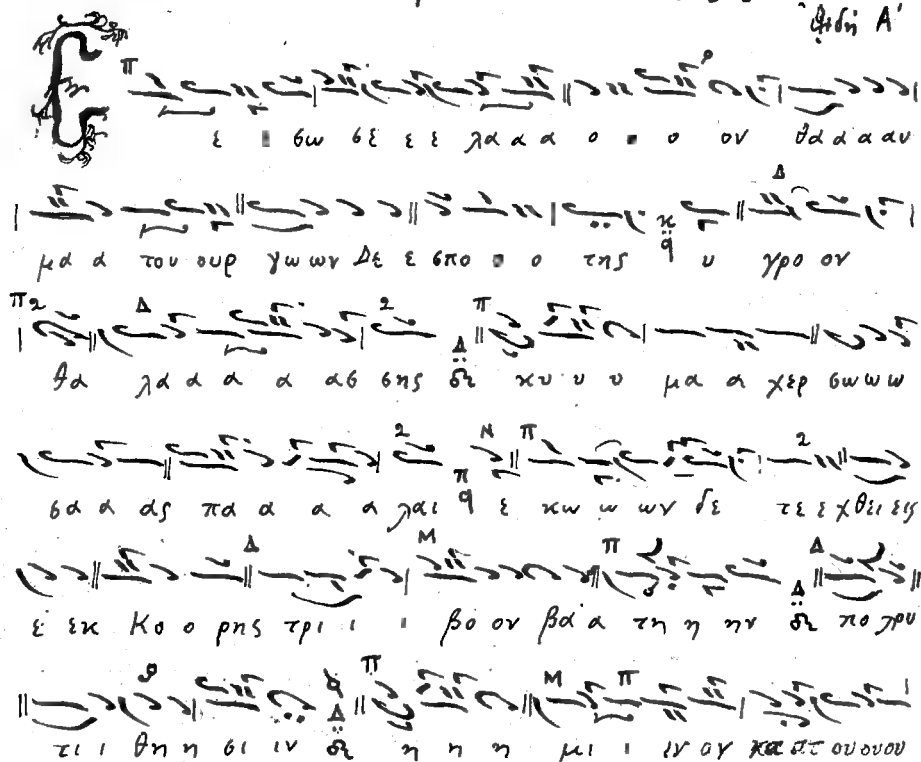 ᾨδὴ Α΄
Ε ε ι σω σε ε ε λα α α ο ο ο ον θα α α αυ
μα α του ουρ γω ων Δε ε σπο ο ο της υ γρο ον
θα λα α α α ασ σης δε κυ υ υ μα α χερ σω ω ω
σα α ας πα α α α λαι ε κω ω ων δε τε ε χθει εις
ε εκ Κο ο ρης τρι ι ι βο ον βα α τη η ην δε πο λρυ
τι ι θη η σι ιν δε η η η μι ι ιν ον κα ατ ου ου ου